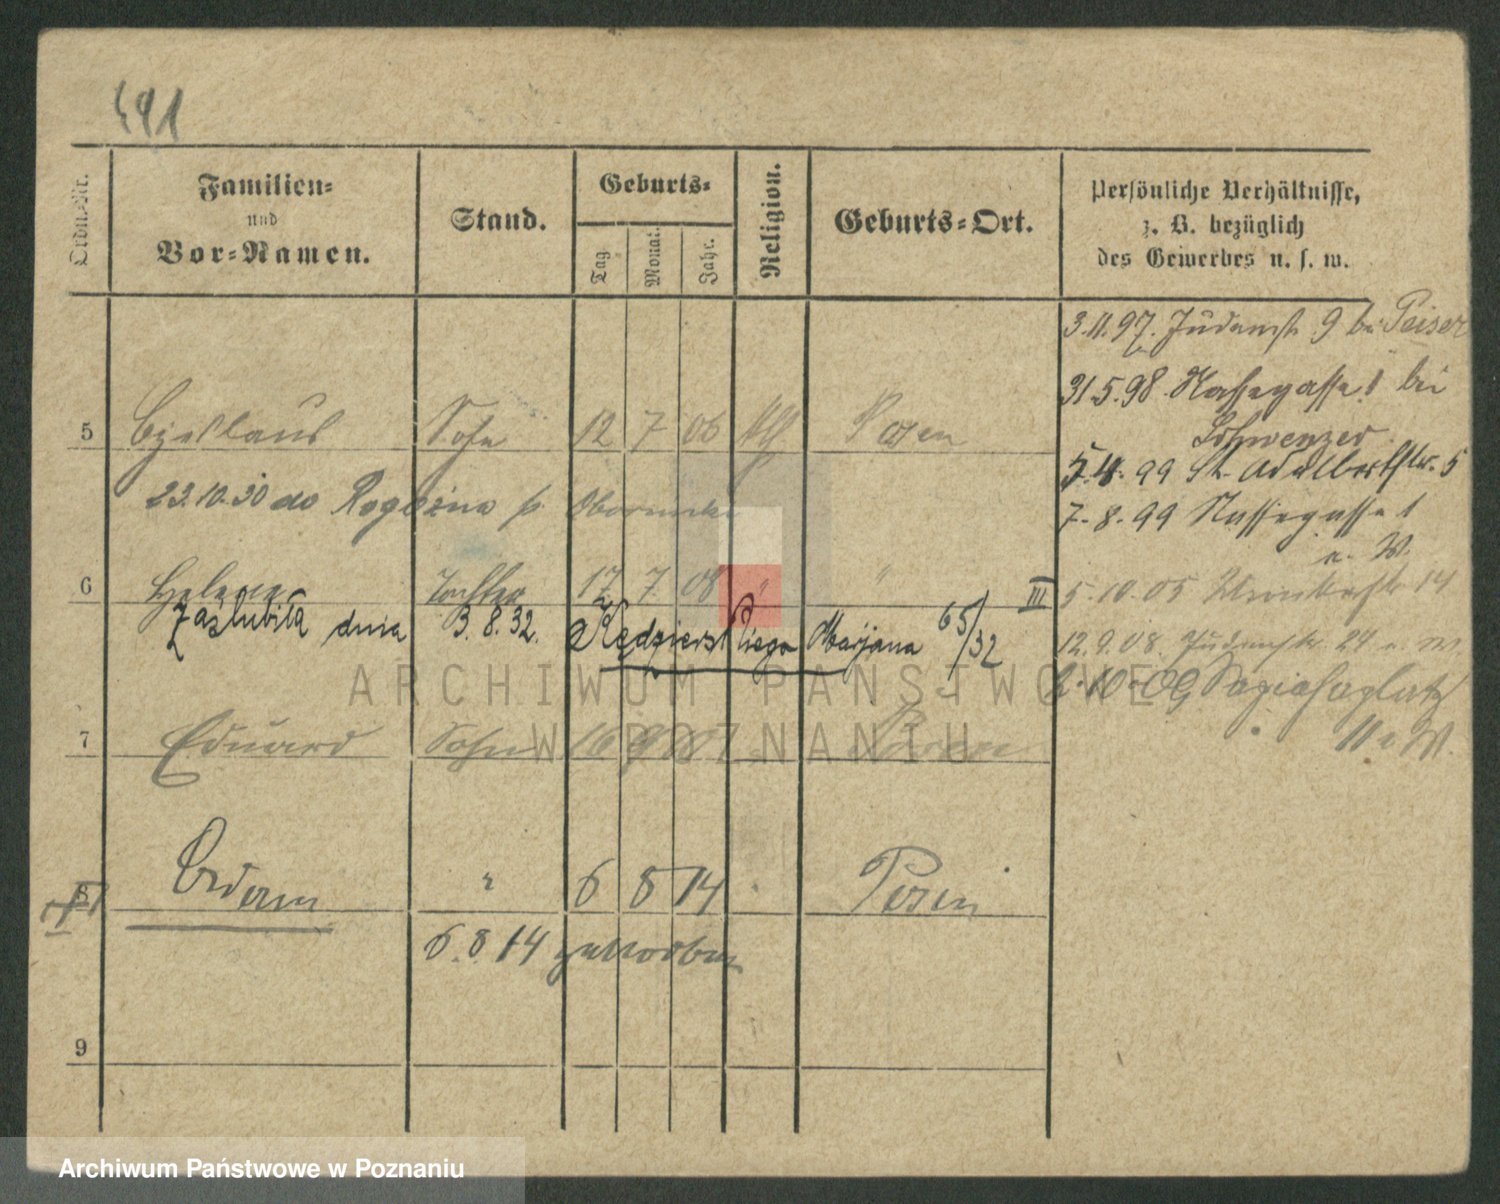 491
Ordn.-Nr.
Familien-
und
Vor-Namen.
Stand.
Geburts-
Tag
Monat.
Jahr.
Religion.
Geburts-Ort.
Persönliche Verhältnisse,
z. B. bezüglich
des Gewerbes u. s. w.
3.11.97. Judenstr 9 bei Peiser
31.5.98. Nassegasse 1 bei
5 Sohn 12 7 06 Posen
99 St. Adalbertstr. 5
23.10.30 do Rogoźna p. Obornicki
7.8.99 Nassegasse 1
n. W.
6 Helene Tochter 12 7 08 " "
III 5.10.05 14
Zaślubiła dnia 3.8.32. Kędzierskiego Marjana 65/32
12.9.08. Judenstr 24 n. W.
2.10.09 Sapiehaplatz
11 n W.
7 Eduard Sohn 16 9 Posen
8 " 6 8 14 Posen
6.8.14
9
ARCHIWUM PAŃSTWOWE
W POZNANIU
Archiwum Państwowe w Poznaniu